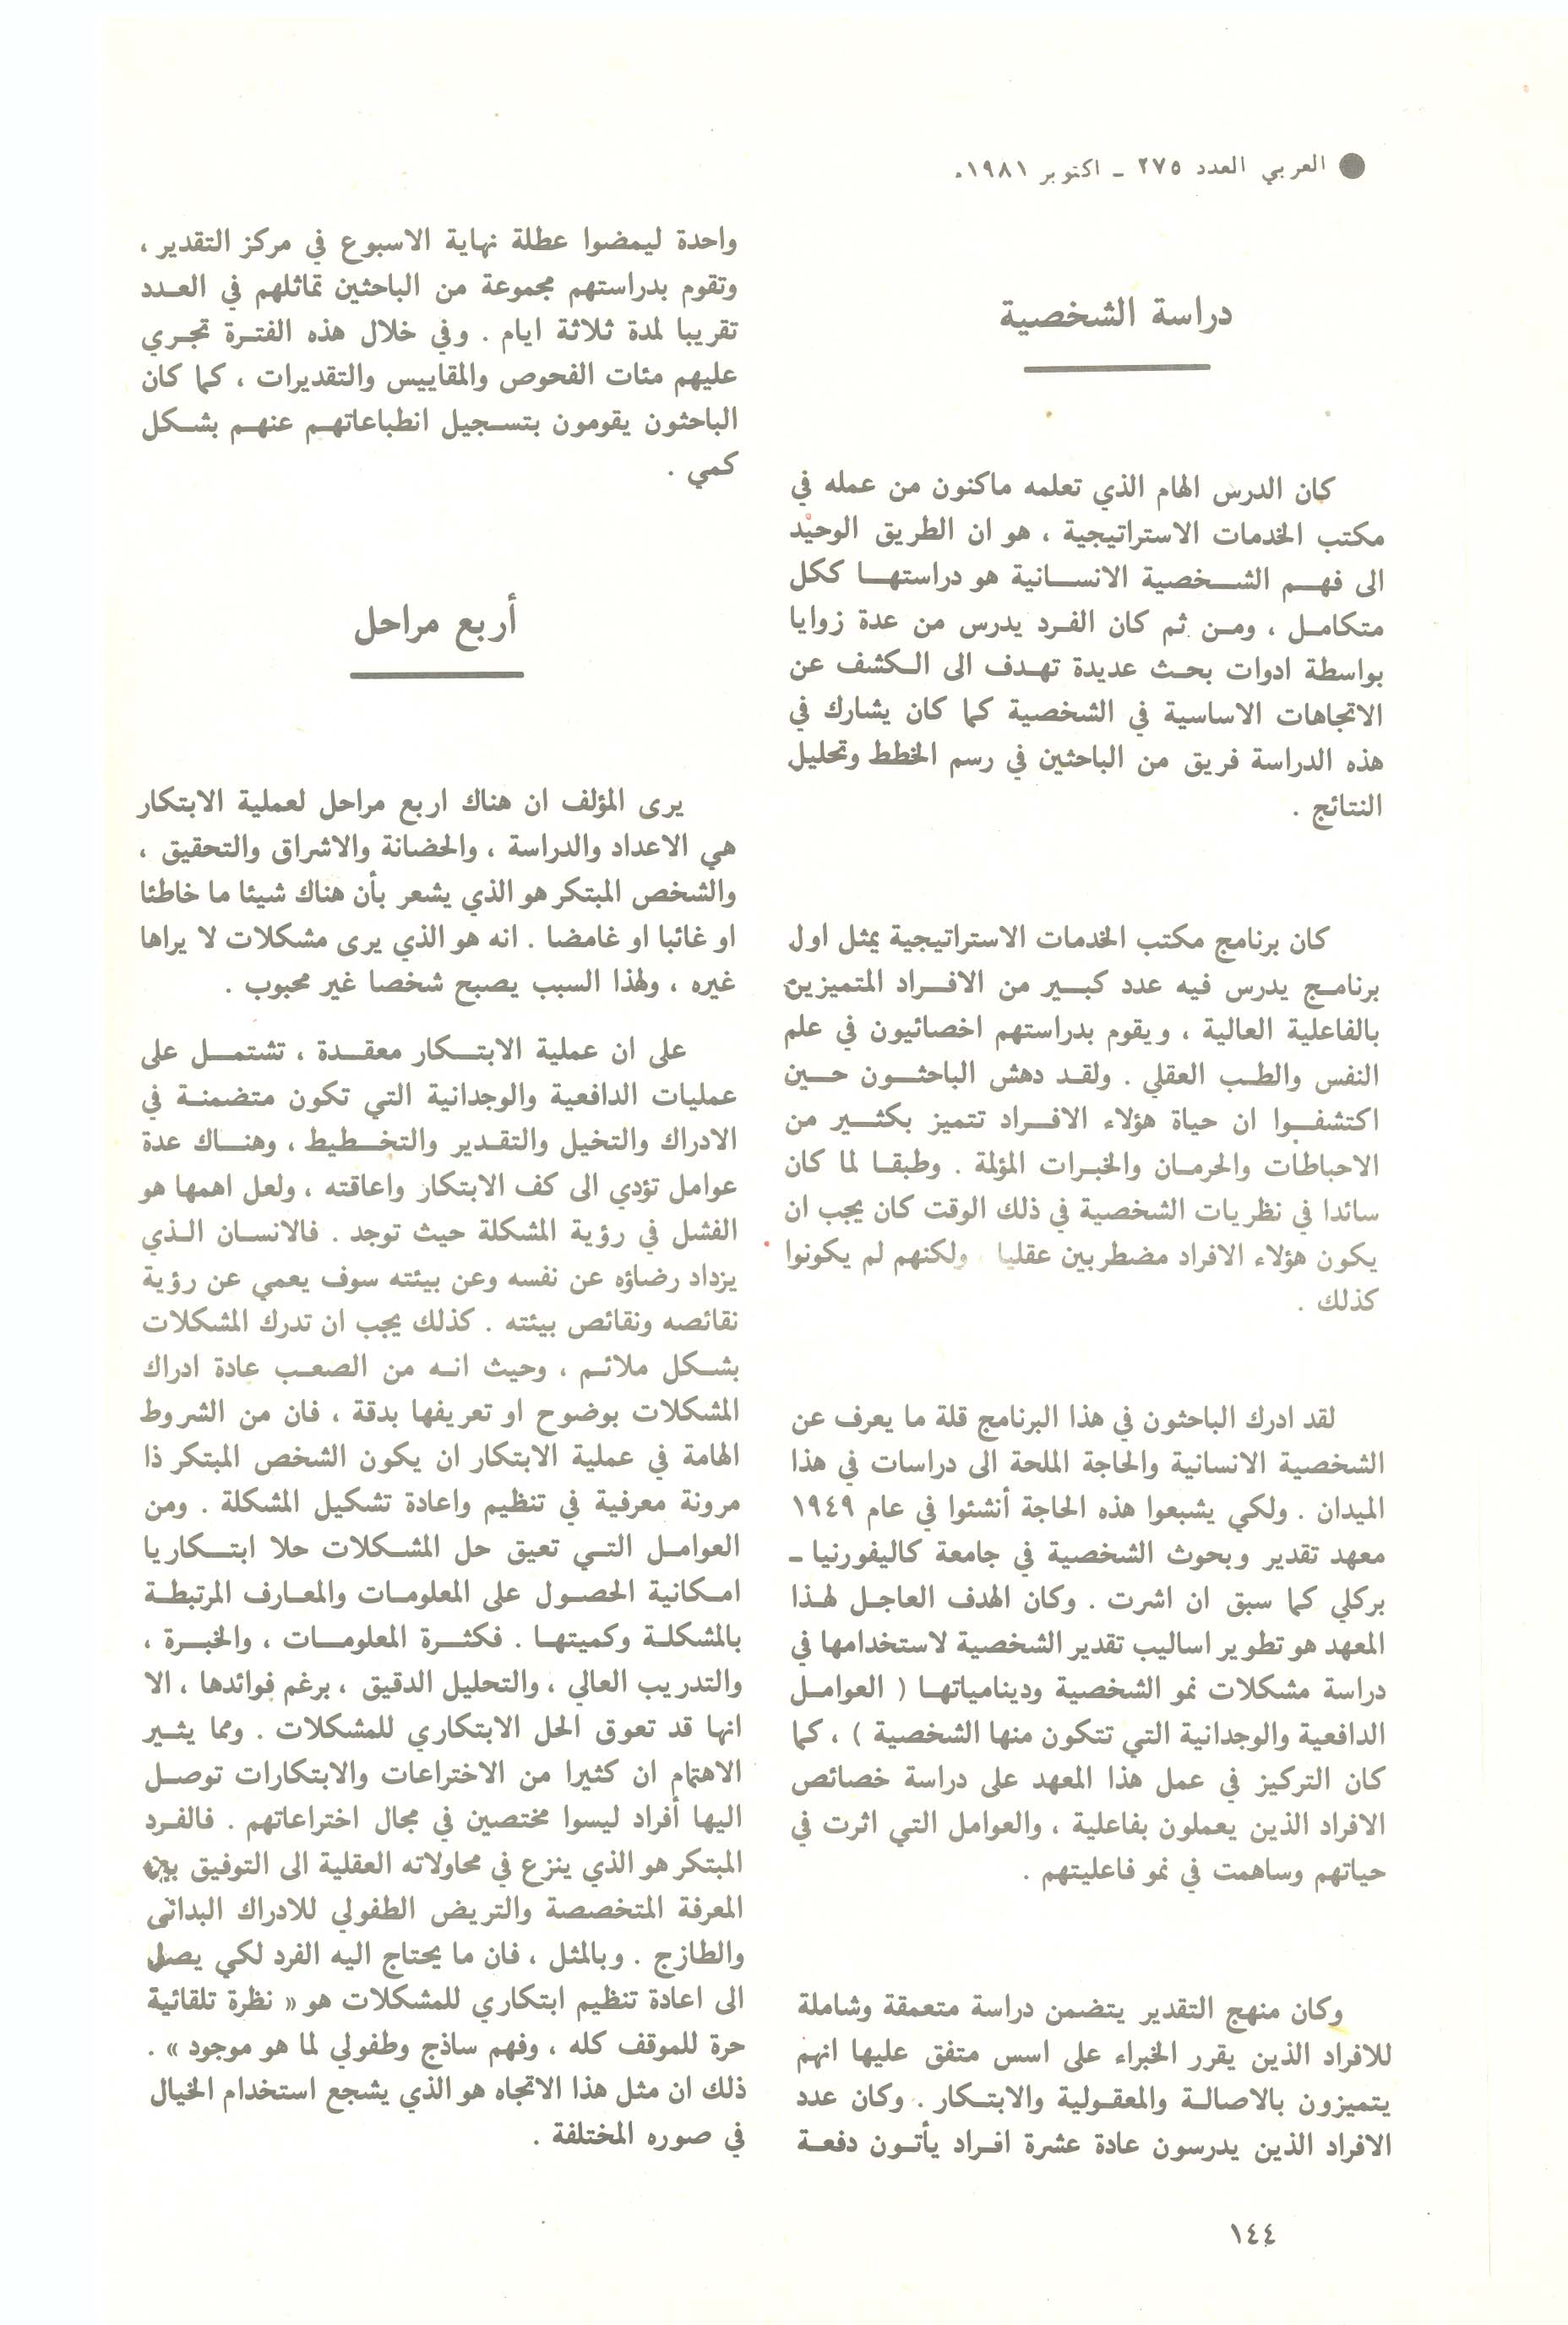 ● العربي العدد ٢٧٥ ـ اكتوبر ١٩٨١.
دراسة الشخصية
كان الدرس الهام الذي تعلمه ماكنون من عمله في
مكتب الخدمات الاستراتيجية ، هو ان الطريق الوحيد
الى فهم الشخصية الانسانية هو دراستها ككل
متكامل ، ومن ثم كان الفرد يدرس من عدة زوايا
بواسطة ادوات بحث عديدة تهدف الى الكشف عن
الاتجاهات الاساسية في الشخصية كما كان يشارك في
هذه الدراسة فريق من الباحثين في رسم الخطط وتحليل
النتائج .
كان برنامج مكتب الخدمات الاستراتيجية يمثل اول
برنامج يدرس فيه عدد كبير من الافراد المتميزين
بالفاعلية العالية ، ويقوم بدراستهم اخصائيون في علم
النفس والطب العقلي . ولقد دهش الباحثون حين
اكتشفوا ان حياة هؤلاء الافراد تتميز بكثير من
الاحباطات والحرمان والخبرات المؤلمة . وطبقا لما كان
سائدا في نظريات الشخصية في ذلك الوقت كان يجب ان
يكون هؤلاء الافراد مضطربين عقليا ولكنهم لم يكونوا
كذلك .
لقد ادرك الباحثون في هذا البرنامج قلة ما يعرف عن
الشخصية الانسانية والحاجة الملحة الى دراسات في هذا
الميدان . ولكي يشبعوا هذه الحاجة أنشئوا في عام ١٩٤٩
معهد تقدير وبحوث الشخصية في جامعة كاليفورنيا ـ
بركلي كما سبق ان اشرت . وكان الهدف العاجل لهذا
المعهد هو تطوير اساليب تقدير الشخصية لاستخدامها في
دراسة مشكلات نمو الشخصية ودينامياتها ( العوامل
الدافعية والوجدانية التي تتكون منها الشخصية ) ، كما
كان التركيز في عمل هذا المعهد على دراسة خصائص
الافراد الذين يعملون بفاعلية ، والعوامل التي اثرت في
حياتهم وساهمت في نمو فاعليتهم .
وكان منهج التقدير يتضمن دراسة متعمقة وشاملة
للافراد الذين يقرر الخبراء على اسس متفق عليها انهم
يتميزون بالاصالة والمعقولية والابتكار . وكان عدد
الافراد الذين يدرسون عادة عشرة افراد يأتون دفعة
واحدة ليمضوا عطلة نهاية الاسبوع في مركز التقدير ،
وتقوم بدراستهم مجموعة من الباحثين تماثلهم في العدد
تقريبا لمدة ثلاثة ايام . وفي خلال هذه الفترة تجري
عليهم مئات الفحوص والمقاييس والتقديرات ، كما كان
الباحثون يقومون بتسجيل انطباعاتهم عنهم بشكل
كمي .
أربع مراحل
يرى المؤلف ان هناك اربع مراحل لعملية الابتكار
هي الاعداد والدراسة ، والحضانة والاشراق والتحقيق ،
والشخص المبتكر هو الذي يشعر بأن هناك شيئا ما خاطئا
او غائبا او غامضا . انه هو الذي يرى مشكلات لا يراها
غيره ، ولهذا السبب يصبح شخصا غير محبوب .
على ان عملية الابتكار معقدة ، تشتمل على
عمليات الدافعية والوجدانية التي تكون متضمنة في
الادراك والتخيل والتقدير والتخطيط ، وهناك عدة
عوامل تؤدي الى كف الابتكار واعاقته ، ولعل اهمها هو
الفشل في رؤية المشكلة حيث توجد . فالانسان الذي
يزداد رضاؤه عن نفسه وعن بيئته سوف يعمي عن رؤية
نقائصه ونقائص بيئته . كذلك يجب ان تدرك المشكلات
بشكل ملائم ، وحيث انه من الصعب عادة ادراك
المشكلات بوضوح او تعريفها بدقة ، فان من الشروط
الهامة في عملية الابتكار ان يكون الشخص المبتكر ذا
مرونة معرفية في تنظيم واعادة تشكيل المشكلة . ومن
العوامل التي تعيق حل المشكلات حلا ابتكاريا
امكانية الحصول على المعلومات والمعارف المرتبطة
بالمشكلة وكميتها . فكثرة المعلومات ، والخبرة ،
والتدريب العالي ، والتحليل الدقيق ، برغم فوائدها ، الا
انها قد تعوق الحل الابتكاري للمشكلات . ومما يثير
الاهتمام ان كثيرا من الاختراعات والابتكارات توصل
اليها أفراد ليسوا مختصين في مجال اختراعاتهم . فالفرد
المبتكر هو الذي ينزع في محاولاته العقلية الى التوفيق
المعرفة المتخصصة والتريض الطفولي للادراك البدائى
والطازج . وبالمثل ، فان ما يحتاج اليه الفرد لكي يصل
الى اعادة تنظيم ابتكاري للمشكلات هو « نظرة تلقائية
حرة للموقف كله ، وفهم ساذج وطفولي لما هو موجود » .
ذلك ان مثل هذا الاتجاه هو الذي يشجع استخدام الخيال
في صوره المختلفة .
١٤٤